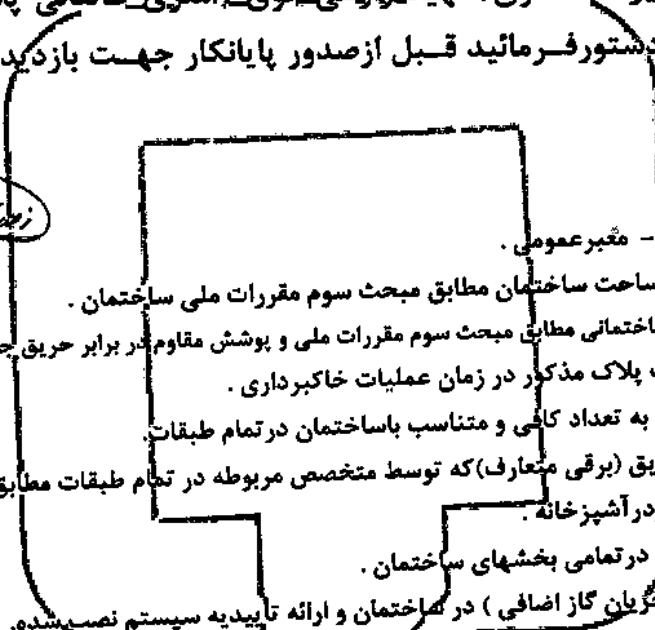 دستورفـرمائید قـبل ازصدور پایانکار جهـت بازدید
- معبرعمومی .
ساحت ساختمان مطابق مبحث سوم مقررات ملی ساختمان .
ساختمانی مطابق مبحث سوم مقررات ملی و پوشش مقاوم در برابر حریق
پلاک مذکور در زمان عملیات خاکبرداری .
به تعداد کافی و متناسب باساختمان درتمام طبقات.
یق (برقی متعارف)که توسط متخصص مربوطه در تمام طبقات مطابق
درآشپزخانه .
درتمامی بخشهای ساختمان .
جریان گاز اضافی ) در ساختمان و ارائه تاییدیه سیستم نصب‌شده.